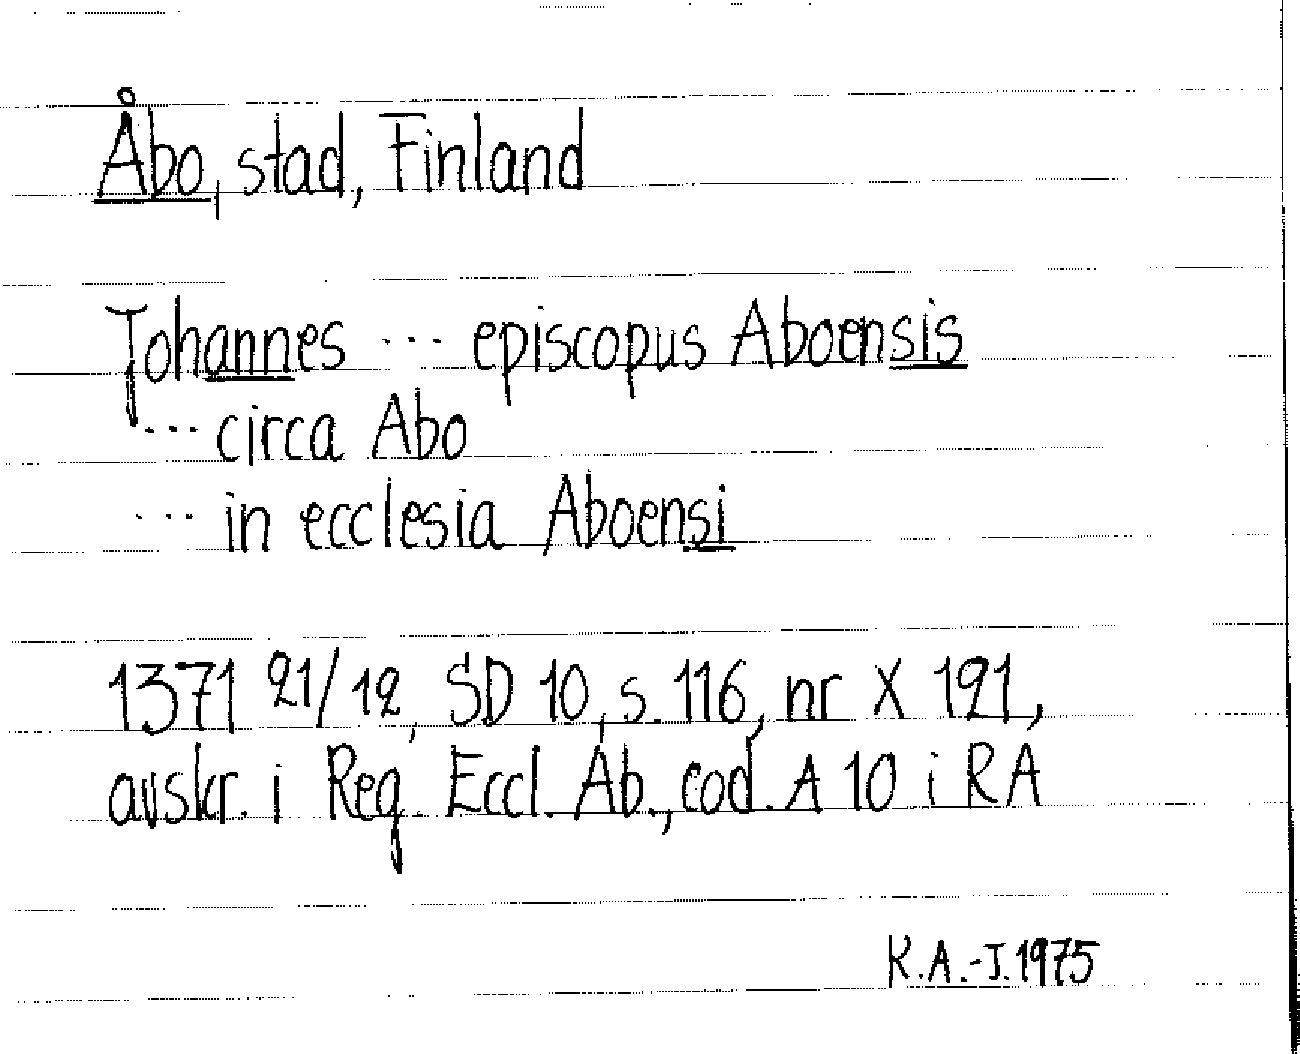 Åbo, stad, Finland
Johannes ... episcopus Aboensis
... circa Abo
... in ecclesia Aboensi
1371 21/12, SD 10, s. 116, nr X 191,
avskr. i Reg. Eccl. Ab., cod. A 10 i RA
K.A.-J. 1975